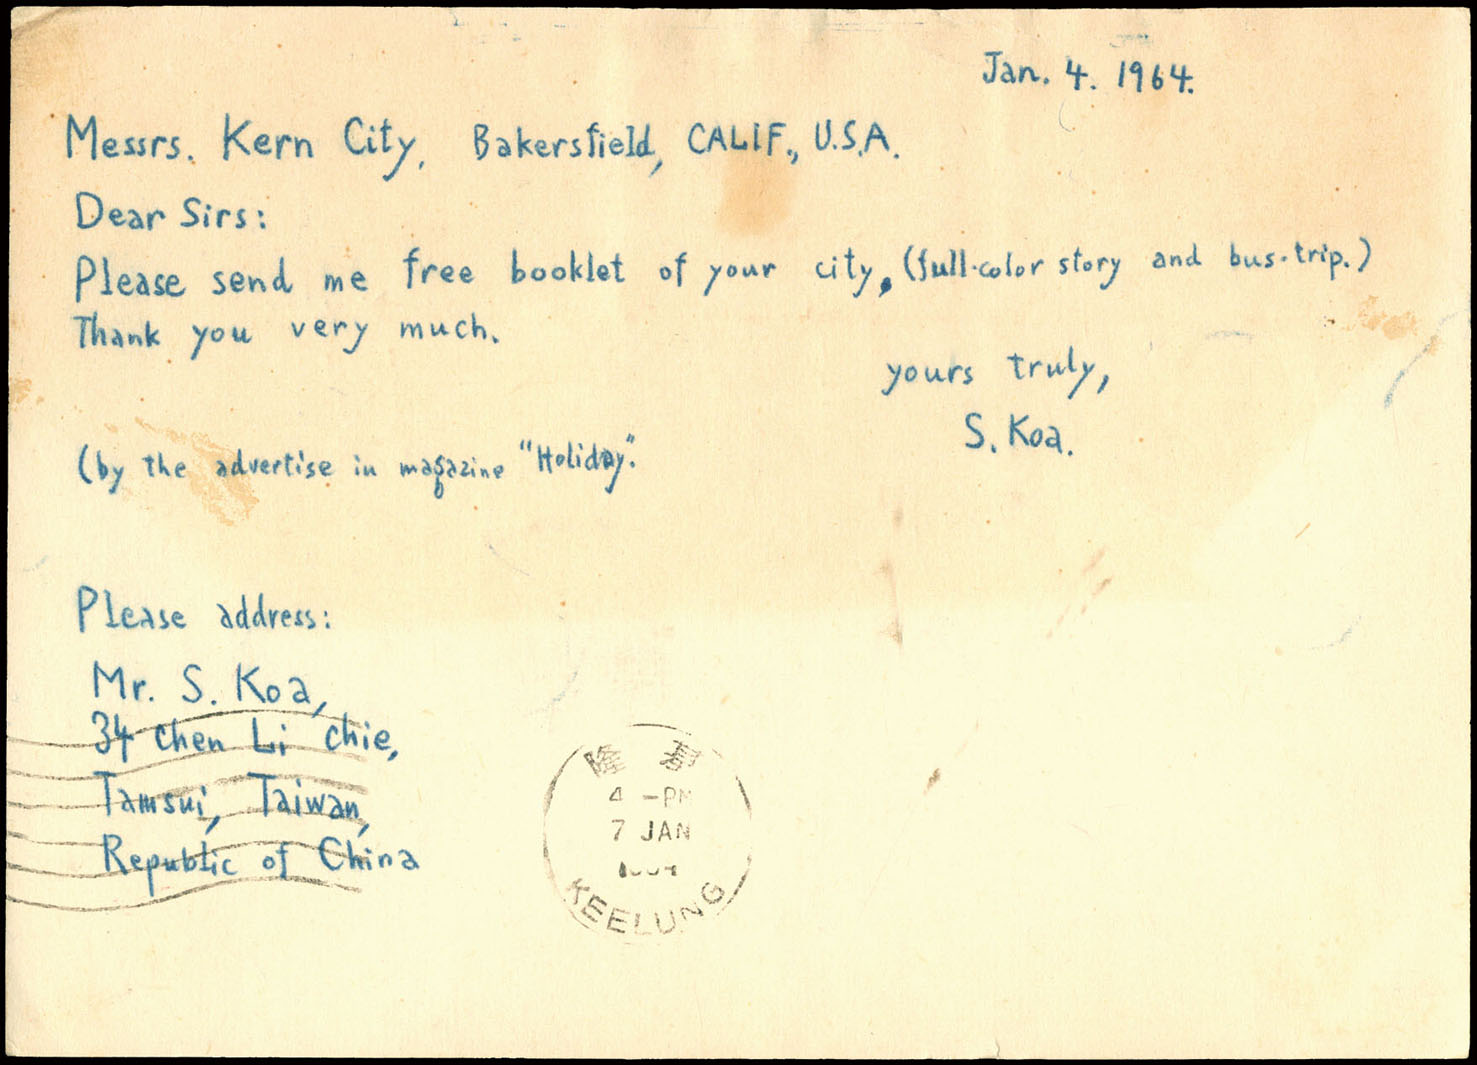 Jan. 4. 1964.
Messrs. Kern City, Bakersfield, CALIF., U.S.A.
Dear Sirs:
Please send me free booklet of your city, (full-color story and bus-trip.)
Thank you very much.
yours truly,
S. Koa.
(by the advertise in magazine "Holiday".
Please address:
Mr. S. Koa,
34 Chen Li Chie,
Tamsui, Taiwan,
Republic of China
隆 基
4 -PM
7 JAN
KEELUNG